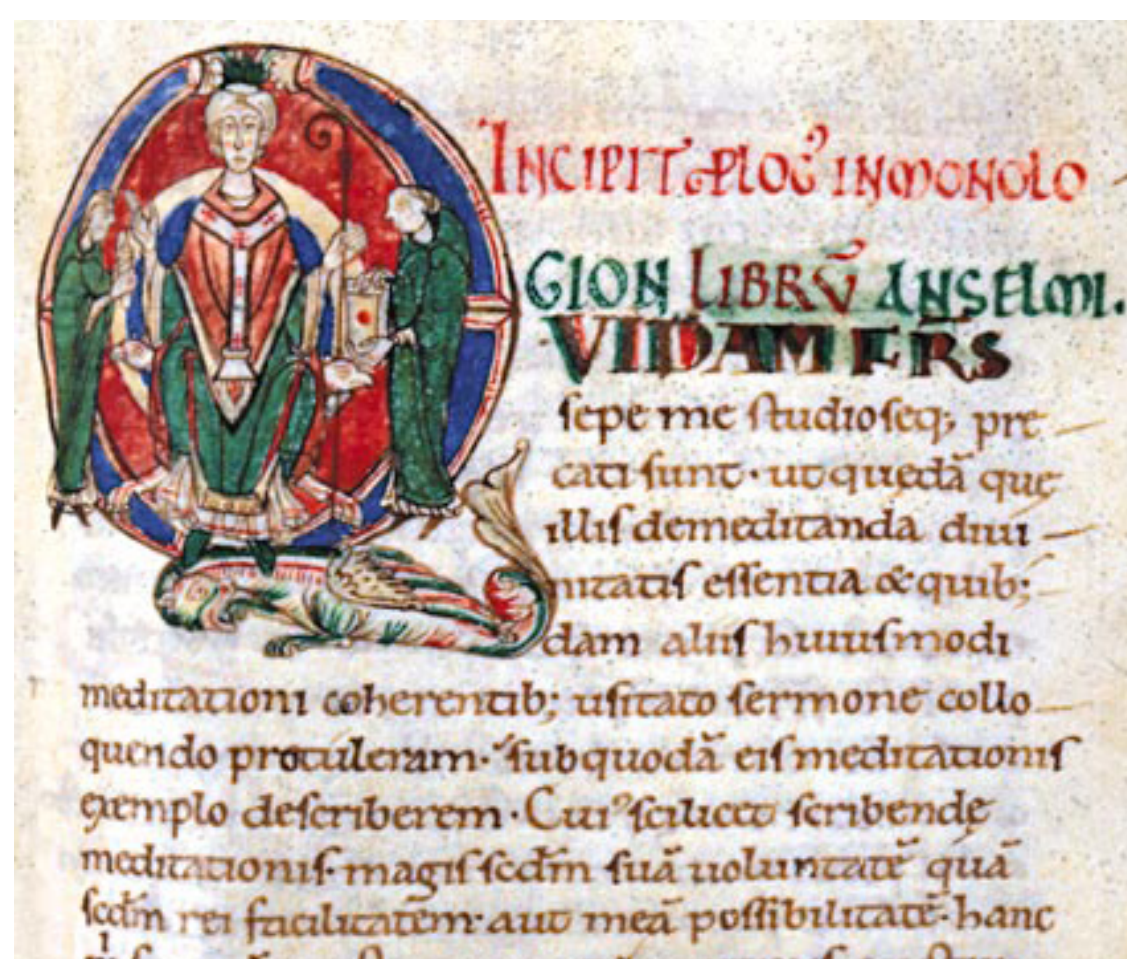 INCIPIT PLOG᾽ IN MONOLO
GION LIBRṼ ANSELMI.
QVIDAM FR̄S
sepe me studioseq; pre
cati sunt· ut quedā quę
illis de meditanda diui
nitatis essentia & quib;
dam aliis huiusmodi
meditationi coherentib; usitato sermone collo
quendo protuleram· sub quodā eis meditationis
exemplo describerem· Cui᾽ scilicet scribendę
meditationis· magis scdm̄ suā uoluntatē quā
scdm̄ rei facilitatem· aut meā possibilitatē· hanc